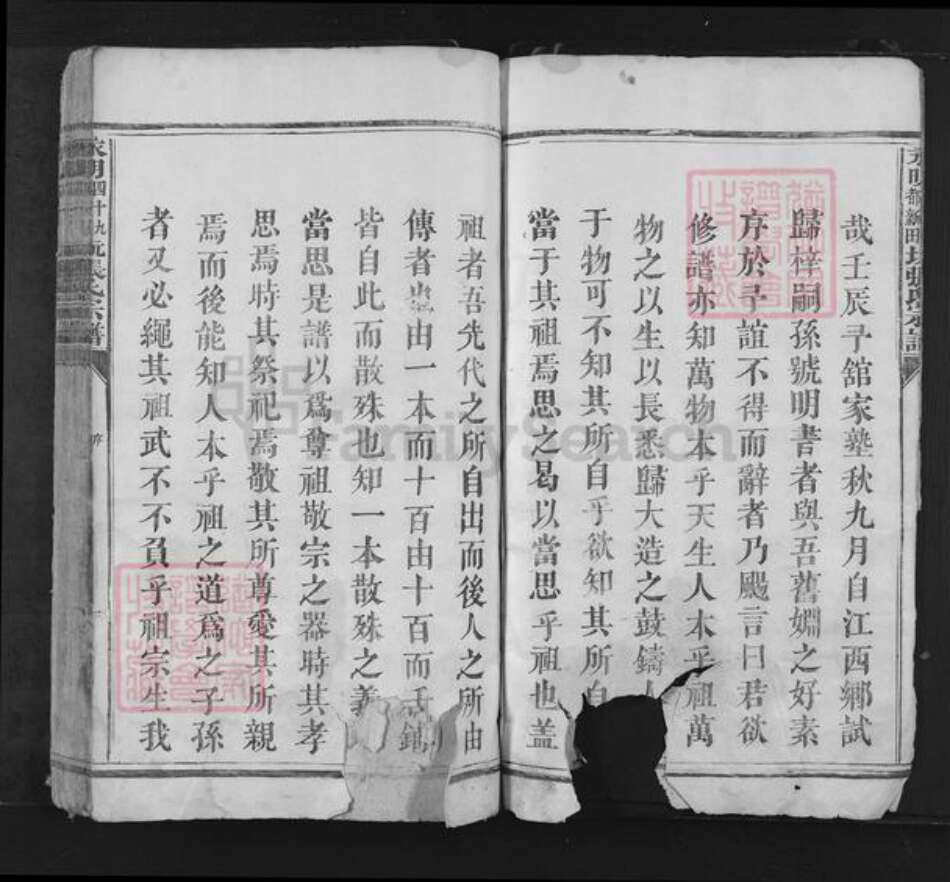 哉壬辰予館家塾秋九月自江西鄉試
歸梓嗣孫號明書者與吾舊姻之好素
序於予誼不得而辭者乃颺言曰君欲
修譜亦知萬物本乎天生人本乎祖萬
物之以生以長悉歸大造之鼓鑄
于物可不知其所自乎欲知其所自
當于其祖焉思之曷以當思乎祖也盖
祖者吾先代之所自出而後人之所由
傳者也由一本而十百由十百而
皆自此而散殊也知一本散殊之義
當思是譜以爲尊祖敬宗之器時其孝
思焉時其祭祀焉敬其所尊愛其所親
焉而後能知人本乎祖之道爲之子孫
者又必繩其祖武不不負乎祖宗生我
張氏宗譜
序
FamilySearch